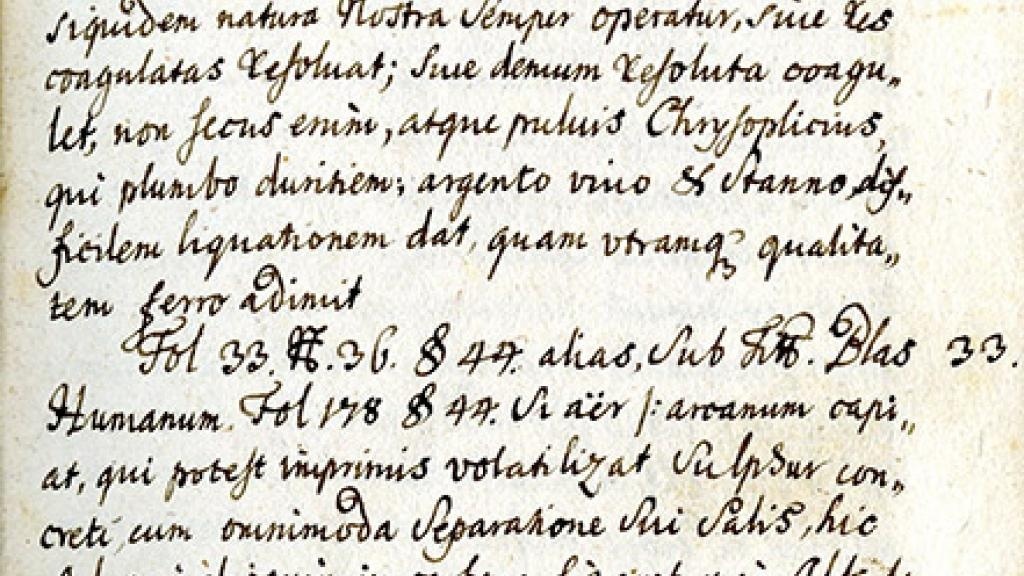 siquidem natura Nostra Semper operatur, siue res
coagulatas resoluat; siue demum resoluta coagu„
let, non secus enim, atque puluis Chrysoplicius,
qui plumbo duritiem; argento viuo & Stanno dif„
ficilem liquationem dat, quam vtramq₃ qualita„
tem ferro adimit
Fol 33. 36. § 44. alias, Sub Blas 33.
Humanum. Fol 178 § 44. Si aër |: arcanum capi„
at, qui potest imprimis volatilizat Sulphur con„
creti, cum omnimoda Separatione Sui Salis, hic